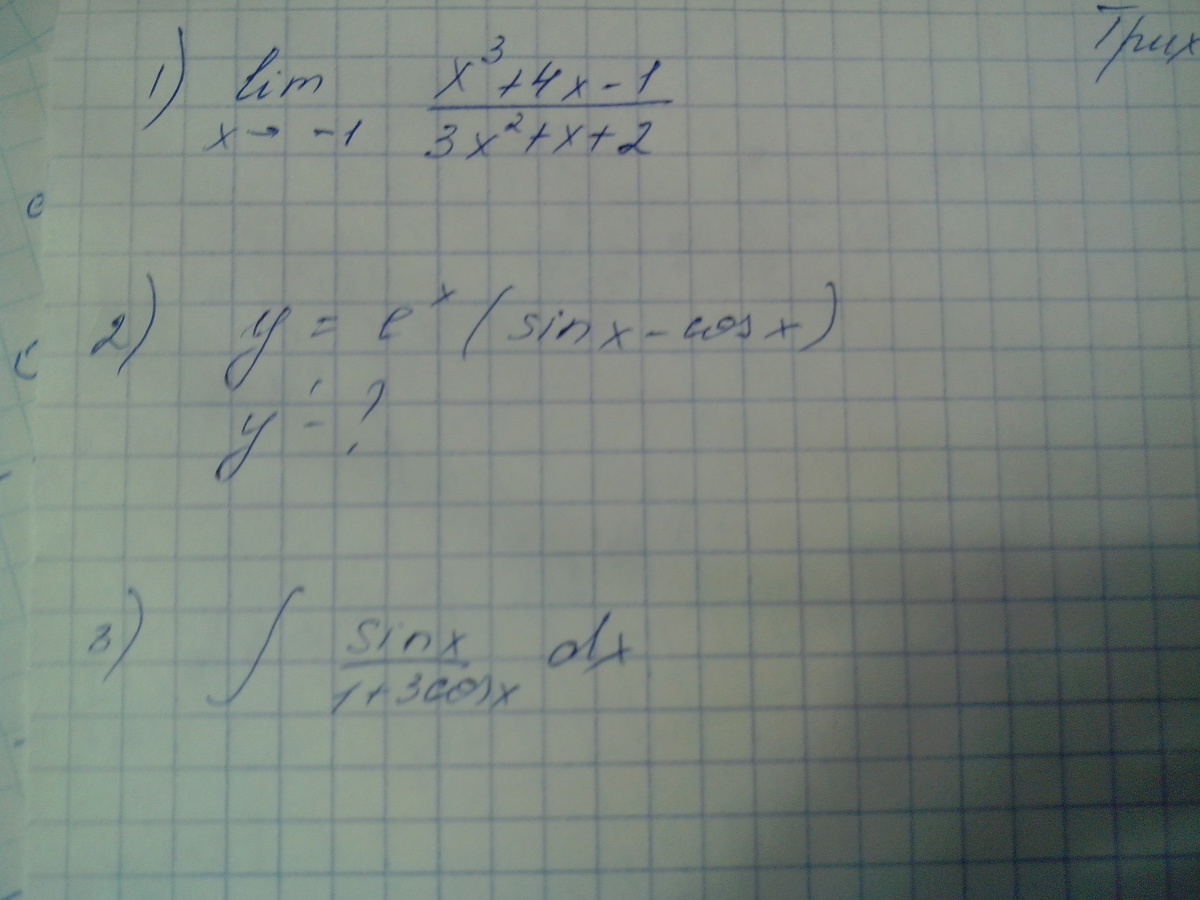 1) lim x→ -1 (x³+4x-1)/(3x²+x+2)
2) y = eˣ (sinx-cosx)
y' - ?
3) ∫ sinx/(1+3cosx) dx